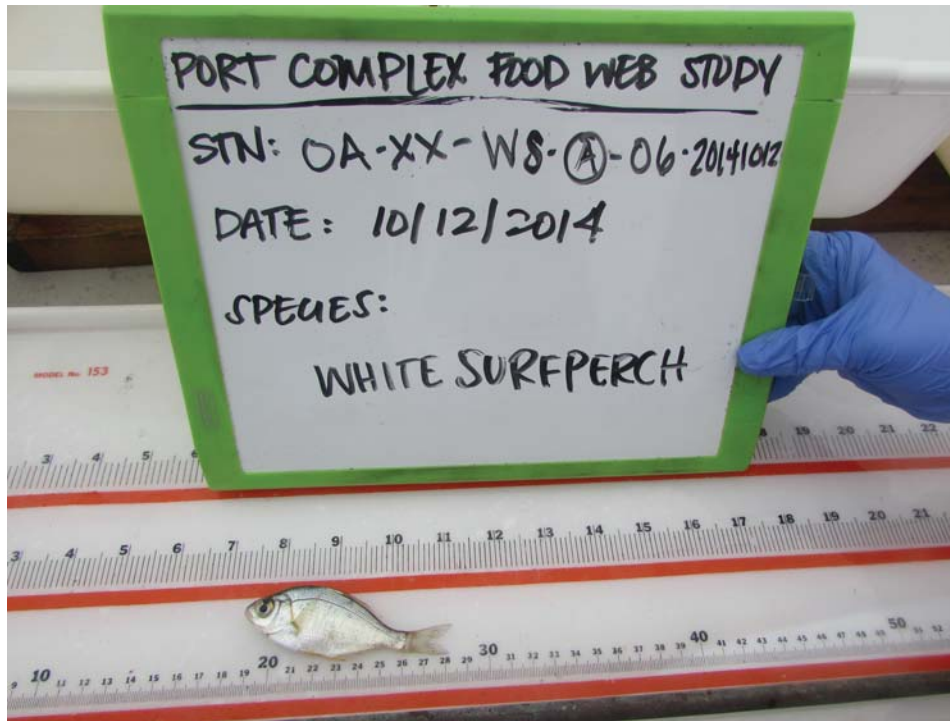 PORT COMPLEX FOOD WEB STUDY
STN: OA-XX-WS-A-06-20141012
DATE: 10/12/2014
SPECIES:
WHITE SURFPERCH
MODEL No. 153
3 4 5 6 18 19 20 21 22
3 4 5 6 7 8 9 10 11 12 13 14 15 16 17 18 19 20 21
9 10 11 12 13 14 15 16 17 18 19 20 21 22 23 24 25 26 27 28 29 30 31 32 33 34 35 36 37 38 39 40 41 42 43 44 45 46 47 48 49 50 51 52